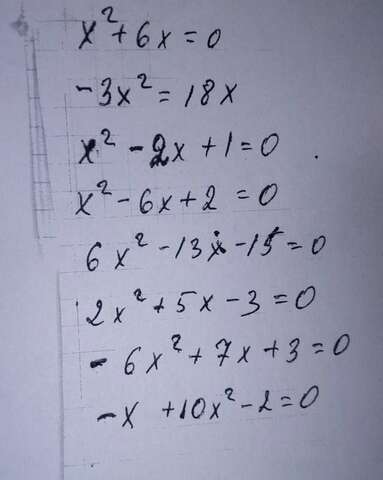 x² + 6x = 0
-3x² = 18x
x² - 2x + 1 = 0
x² - 6x + 2 = 0
6x² - 13x - 15 = 0
2x² + 5x - 3 = 0
- 6x² + 7x + 3 = 0
-x + 10x² - 2 = 0